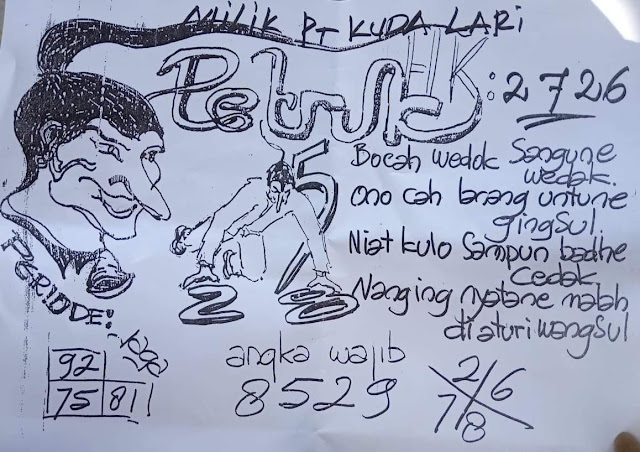 MILIK PT KUDA LARI
Petruk
HK: 2726
5
Bocah wedok Sangune
wedak.
Ono cah lanang untune
gingsul.
Niat kulo Sampun badhe
Cedak
Nanging nyatane malah
diaturi wangsul
PERIODE:
92
75 81
angka wajib
8529
2 6
7 8